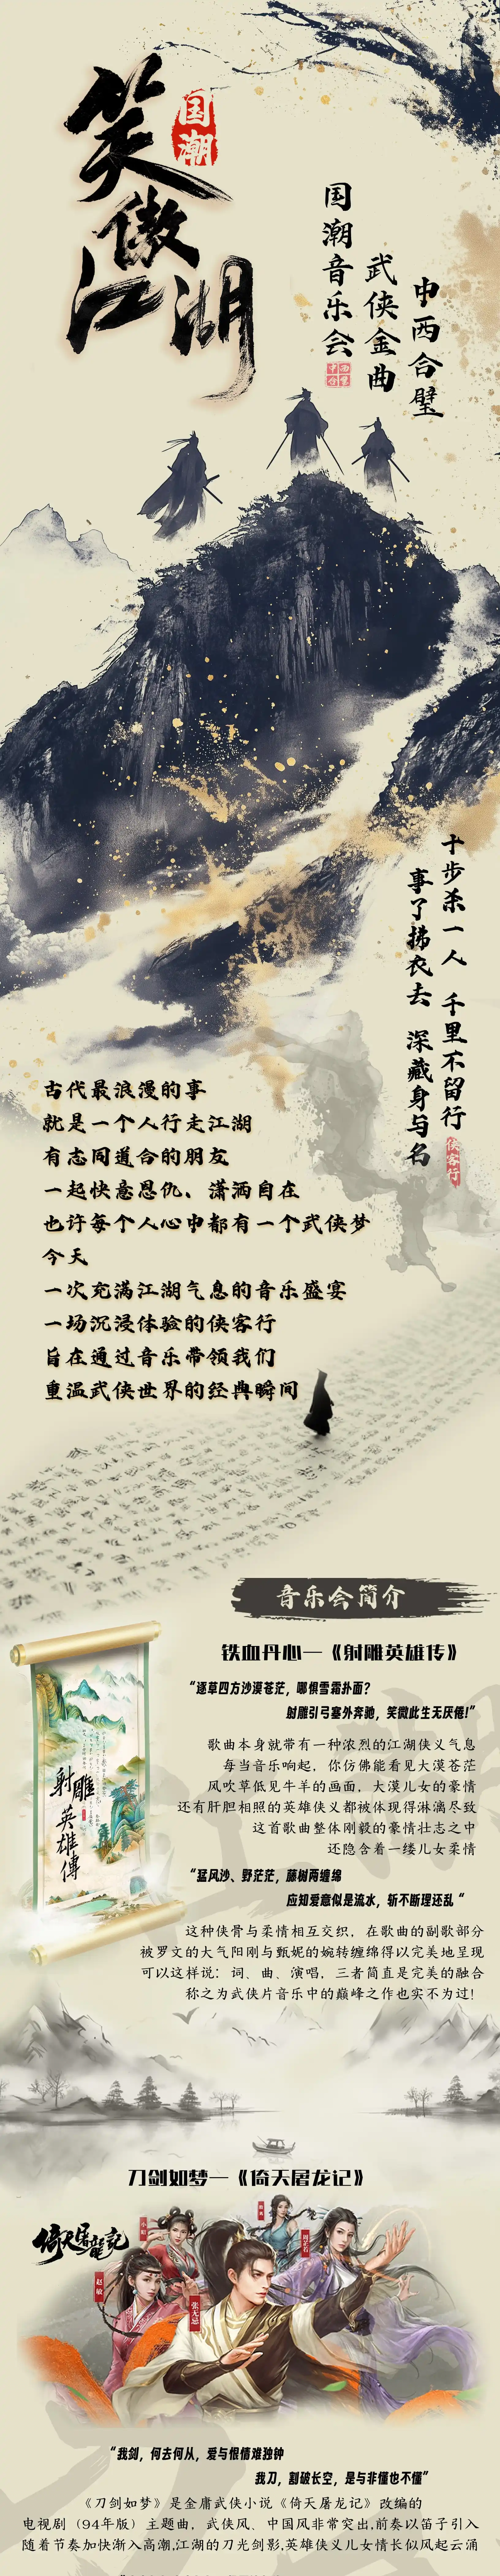 笑傲江湖
国潮
国潮音乐会
武侠金曲
中西合璧
十步杀一人 千里不留行
事了拂衣去 深藏身与名
侠客行
古代最浪漫的事
就是一个人行走江湖
有志同道合的朋友
一起快意恩仇、潇洒自在
也许每个人心中都有一个武侠梦
今天
一次充满江湖气息的音乐盛宴
一场沉浸体验的侠客行
旨在通过音乐带领我们
重温武侠世界的经典瞬间
音乐会简介
铁血丹心—《射雕英雄传》
“逐草四方沙漠苍茫，哪惧雪霜扑面？
射雕引弓塞外奔驰，笑微此生无厌倦!”
歌曲本身就带有一种浓烈的江湖侠义气息
每当音乐响起，你仿佛能看见大漠苍茫
风吹草低见牛羊的画面，大漠儿女的豪情
还有肝胆相照的英雄侠义都被体现得淋漓尽致
这首歌曲整体刚毅的豪情壮志之中
还隐含着一缕儿女柔情
“猛风沙、野茫茫，藤树两缠绵
应知爱意似是流水，斩不断理还乱“
这种侠骨与柔情相互交织，在歌曲的副歌部分
被罗文的大气阳刚与甄妮的婉转缠绵得以完美地呈现
可以这样说：词、曲、演唱，三者简直是完美的融合
称之为武侠片音乐中的巅峰之作也实不为过!
射雕英雄傳
刀剑如梦—《倚天屠龙记》
倚天屠龍記
小昭
赵敏
张无忌
周芷若
“我剑，何去何从，爱与恨情难独钟
我刀，割破长空，是与非懂也不懂”
《刀剑如梦》是金庸武侠小说《倚天屠龙记》改编的
电视剧（94年版）主题曲，武侠风、中国风非常突出,前奏以笛子引入
随着节奏加快渐入高潮,江湖的刀光剑影,英雄侠义儿女情长似风起云涌